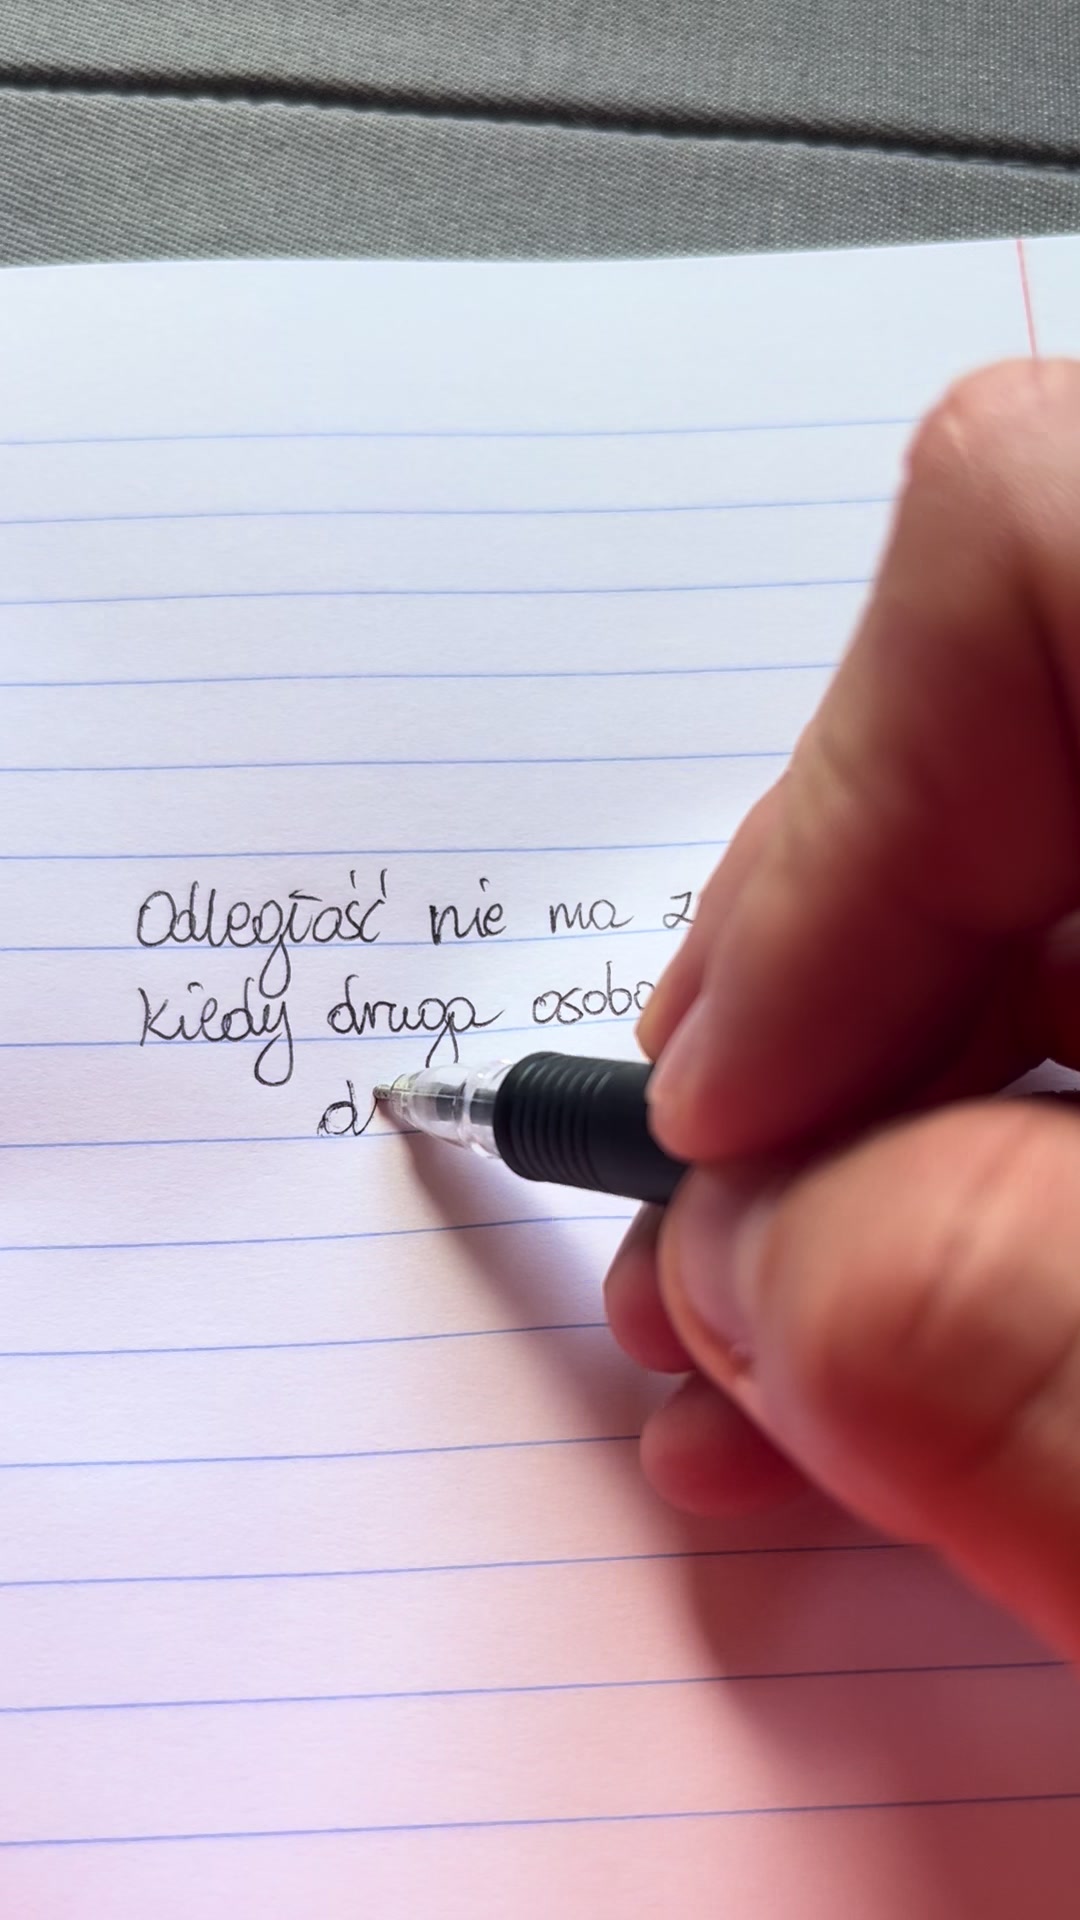 Odległość nie ma
kiedy druga osoba
d